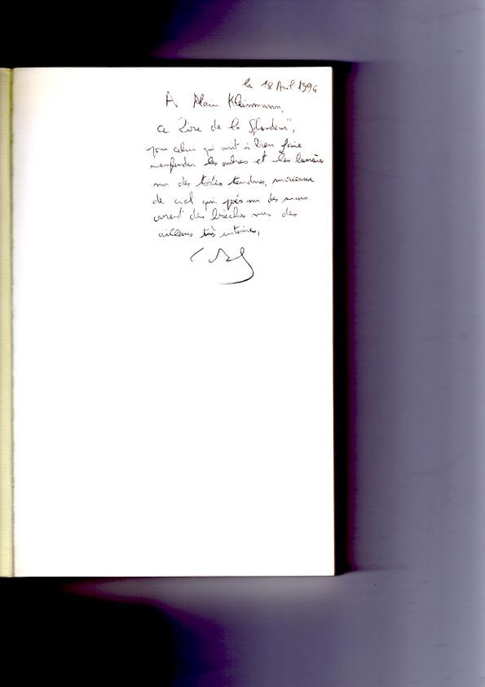 le 18 Avril 1994
À Alain Kleinmann,
ce "Livre de la Splendeur",
pour celui qui sait si bien faire
les ombres et les lumières
sur des toiles tendues, morceaux
de ciel qui posés sur des murs
ouvrent des brèches vers des
ailleurs très intimes,